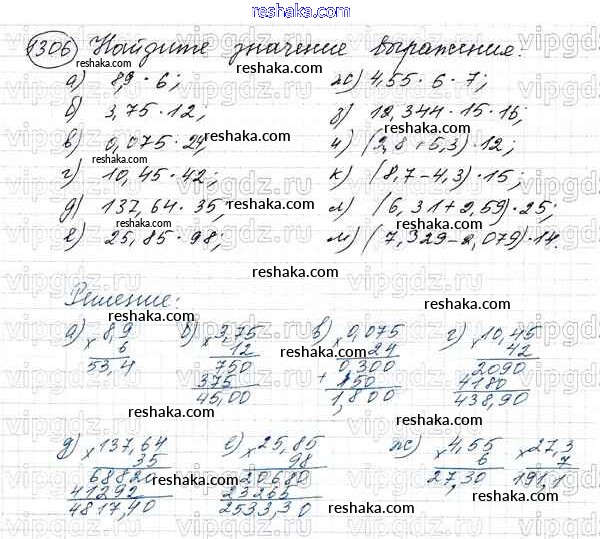 www.reshaka.com
1306 Найдите значение выражения:
а) 8,9 · 6; ж) 4,55 · 6 · 7;
б) 3,75 · 12; з) 12,344 · 15 · 16;
в) 0,075 · 24; и) (2,8 + 5,3) · 12;
г) 10,45 · 42; к) (8,7 - 4,3) · 15;
д) 137,64 · 35; л) (6,31 + 2,59) · 25;
е) 25,85 · 98; м) (7,329 - 2,079) · 14.
Решение:
а) × 8,9 б) × 3,75 в) × 0,075 г) × 10,45
6 12 24 42
53,4 750 0,300 2090
375 + 150 4180
45,00 1,800 438,90
д) × 137,64 е) × 25,85 ж) × 4,55 × 27,3
35 98 6 7
68820 20680 27,30 191,1
41292 23265
4817,40 2533,30
www.reshaka.com